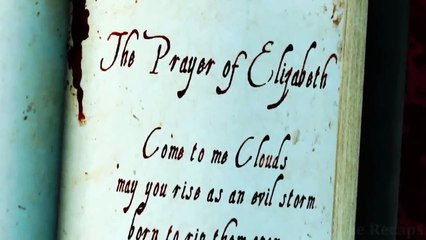 The Prayer of Elizabeth
Come to me Clouds
may you rise as an evil storm
born to rip them open
Recaps